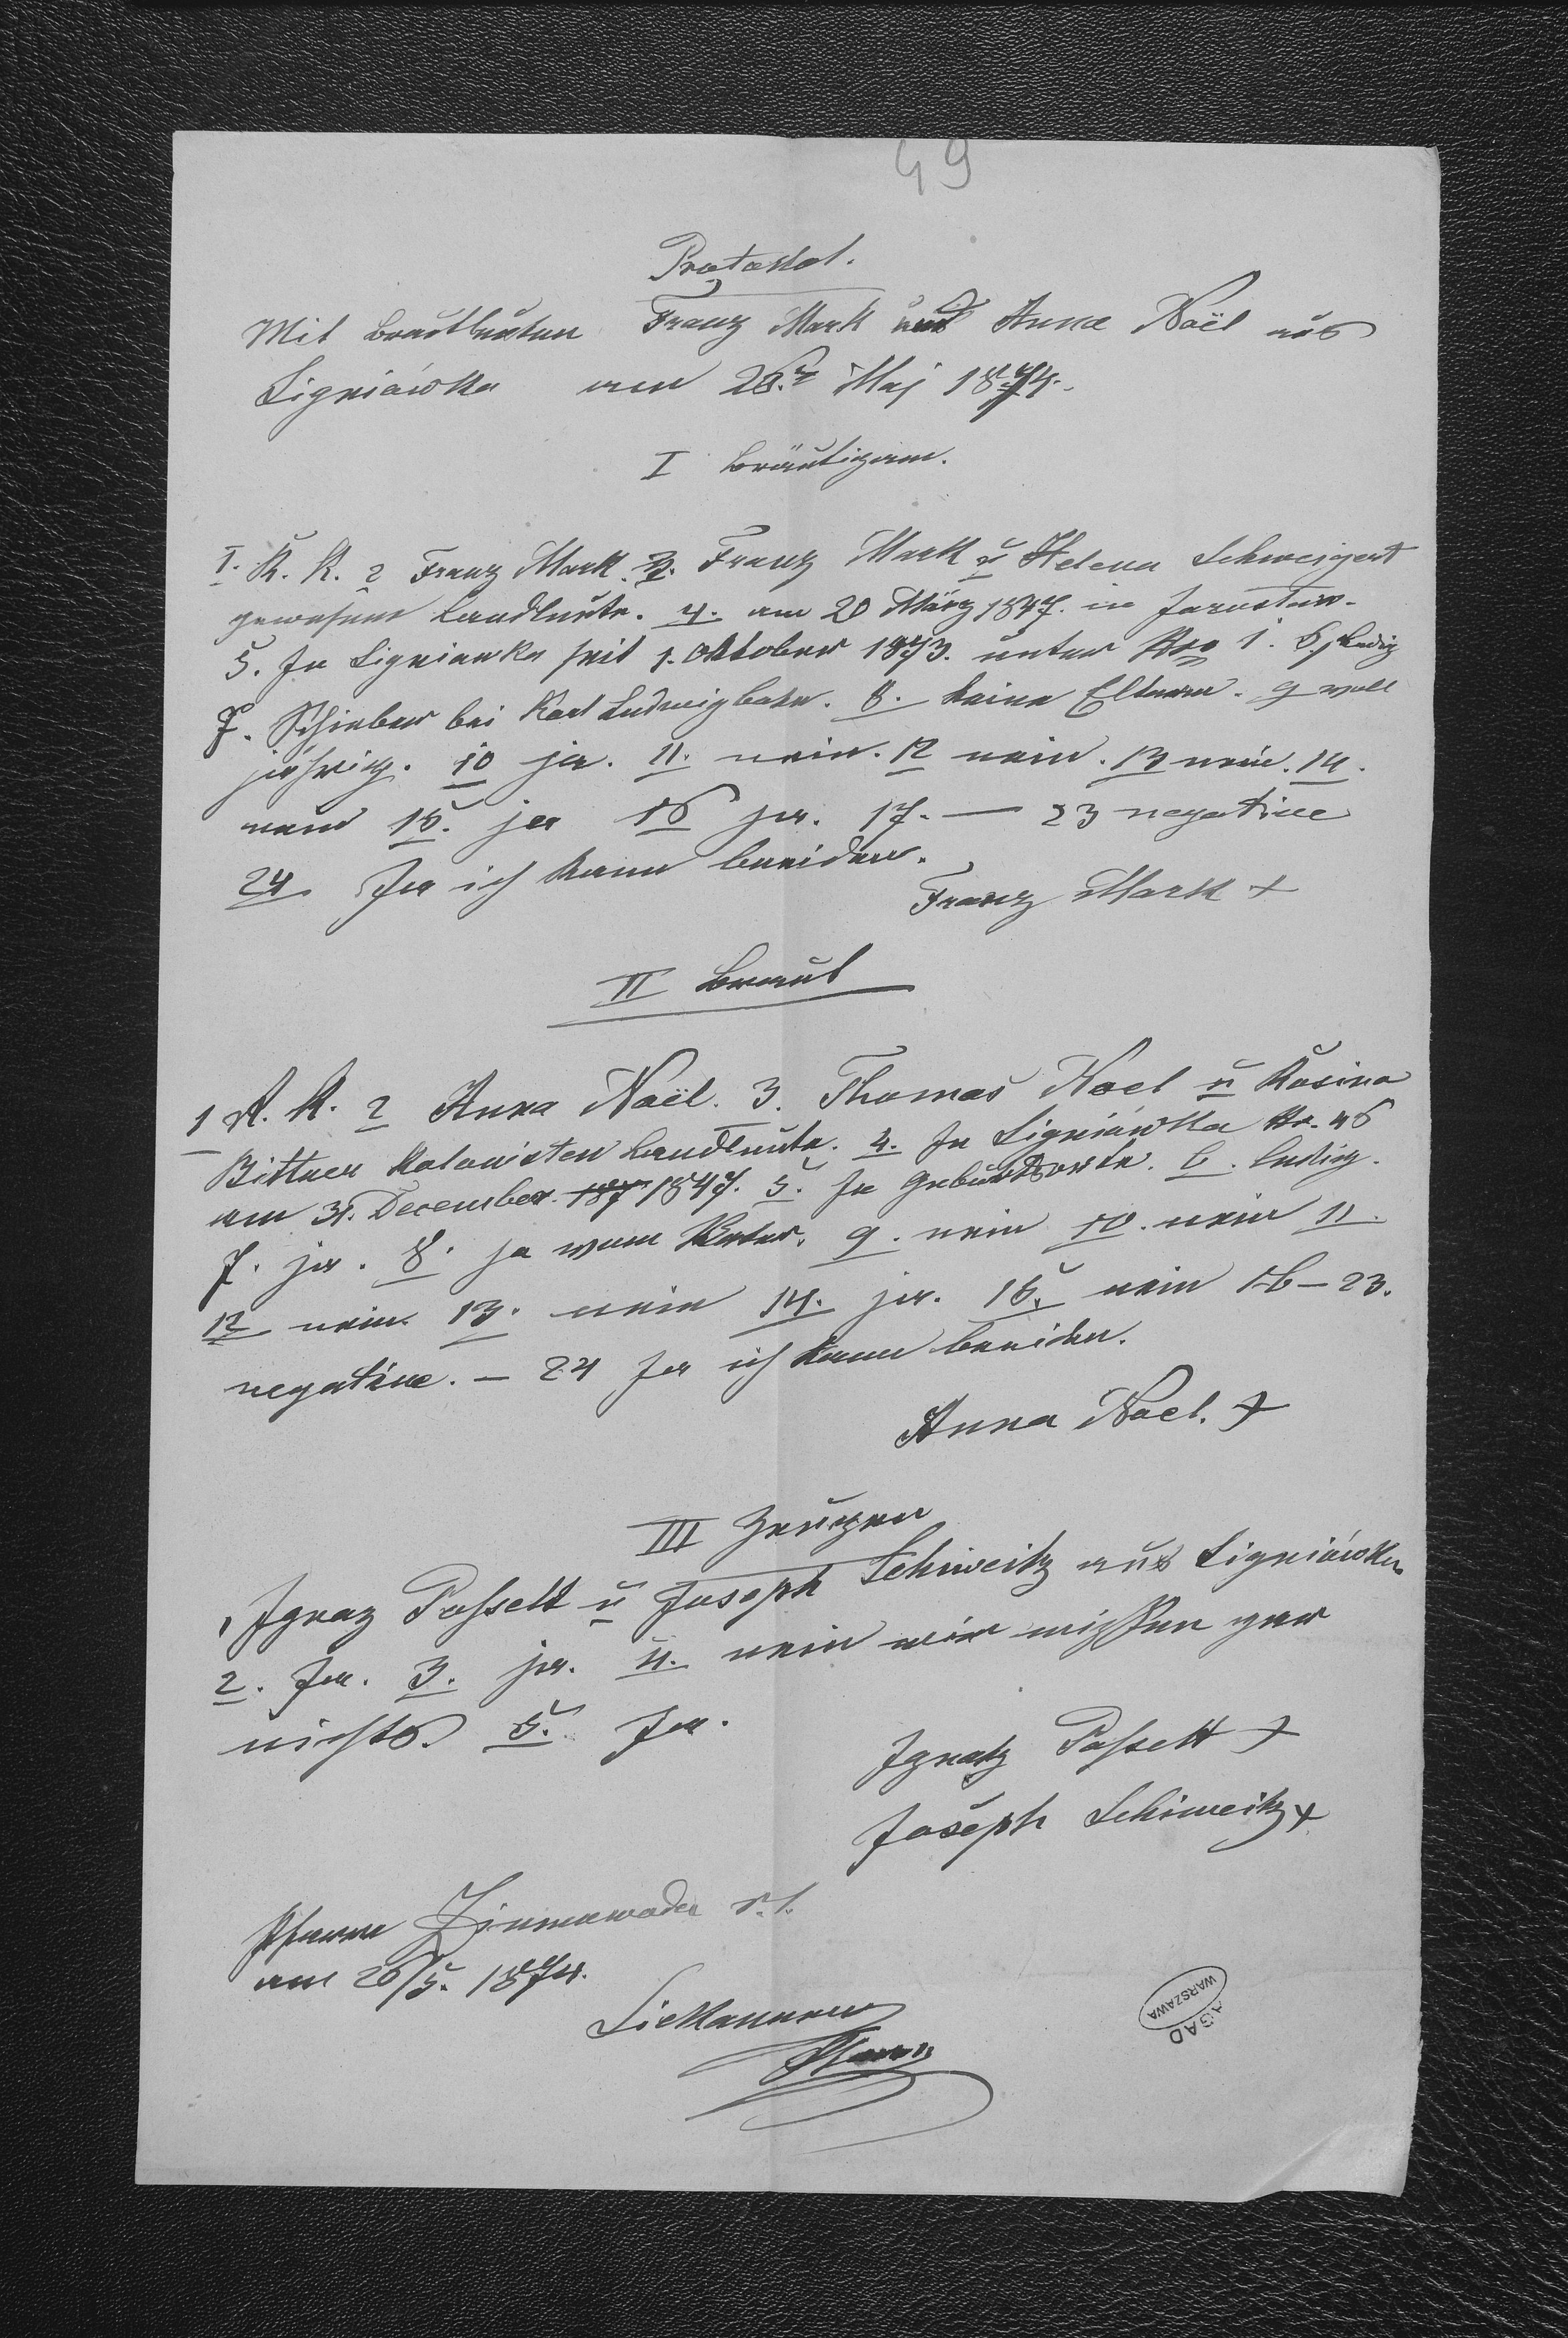 49
Protokol.
Mit Brautleuten Franz Mark und Anna Noël aus
Ligniówka am 26. Maj 1874.
I Bräutigam.
1. R. K. 2 Franz Mark. 3. Franz Mark u Helena Schweigert
gewesene Landleute. 4. am 20 März 1847. in Jaroslau.
5. In Ligniowka seit 1. Oktober 1873. unter Nro 1. 6. ledig
7. Schieber bei Karl Ludwigbahn. 8. keine Eltern. 9 voll
jährig. 10 ja. 11. nein. 12 nein. 13 nein. 14.
nein 15. ja 16 ja. 17. — 23 negative
24. Ja ich kann beeiden.
Franz Mark +
II Braut
1 R. K. 2 Anna Noël. 3. Thomas Noel u Rosina
Bittner Kolonisten Landleute. 4. In Ligniówka Nr. 46
am 31. December 187 1847. 5. In Geburtsorte. 6. ledig.
7. ja. 8. ja vom Vater. 9. nein 10. nein 11.
12 nein. 13. nein 14. ja. 15. nein 16 – 23.
negative. – 24 Ja ich kann beeiden.
Anna Noel. +
III Zeugen
1 Ignaz Posselt u Joseph Schweitz aus Ligniówka
2. Ja. 3. ja. 4. nein wir wissen gar
nichts. 5. Ja.
Ignatz Posselt +
Joseph Schweitz +
Pfarre Zimnawoda r. l.
am 26/5. 1874.
Pfarrer
AGAD
WARSZAWA